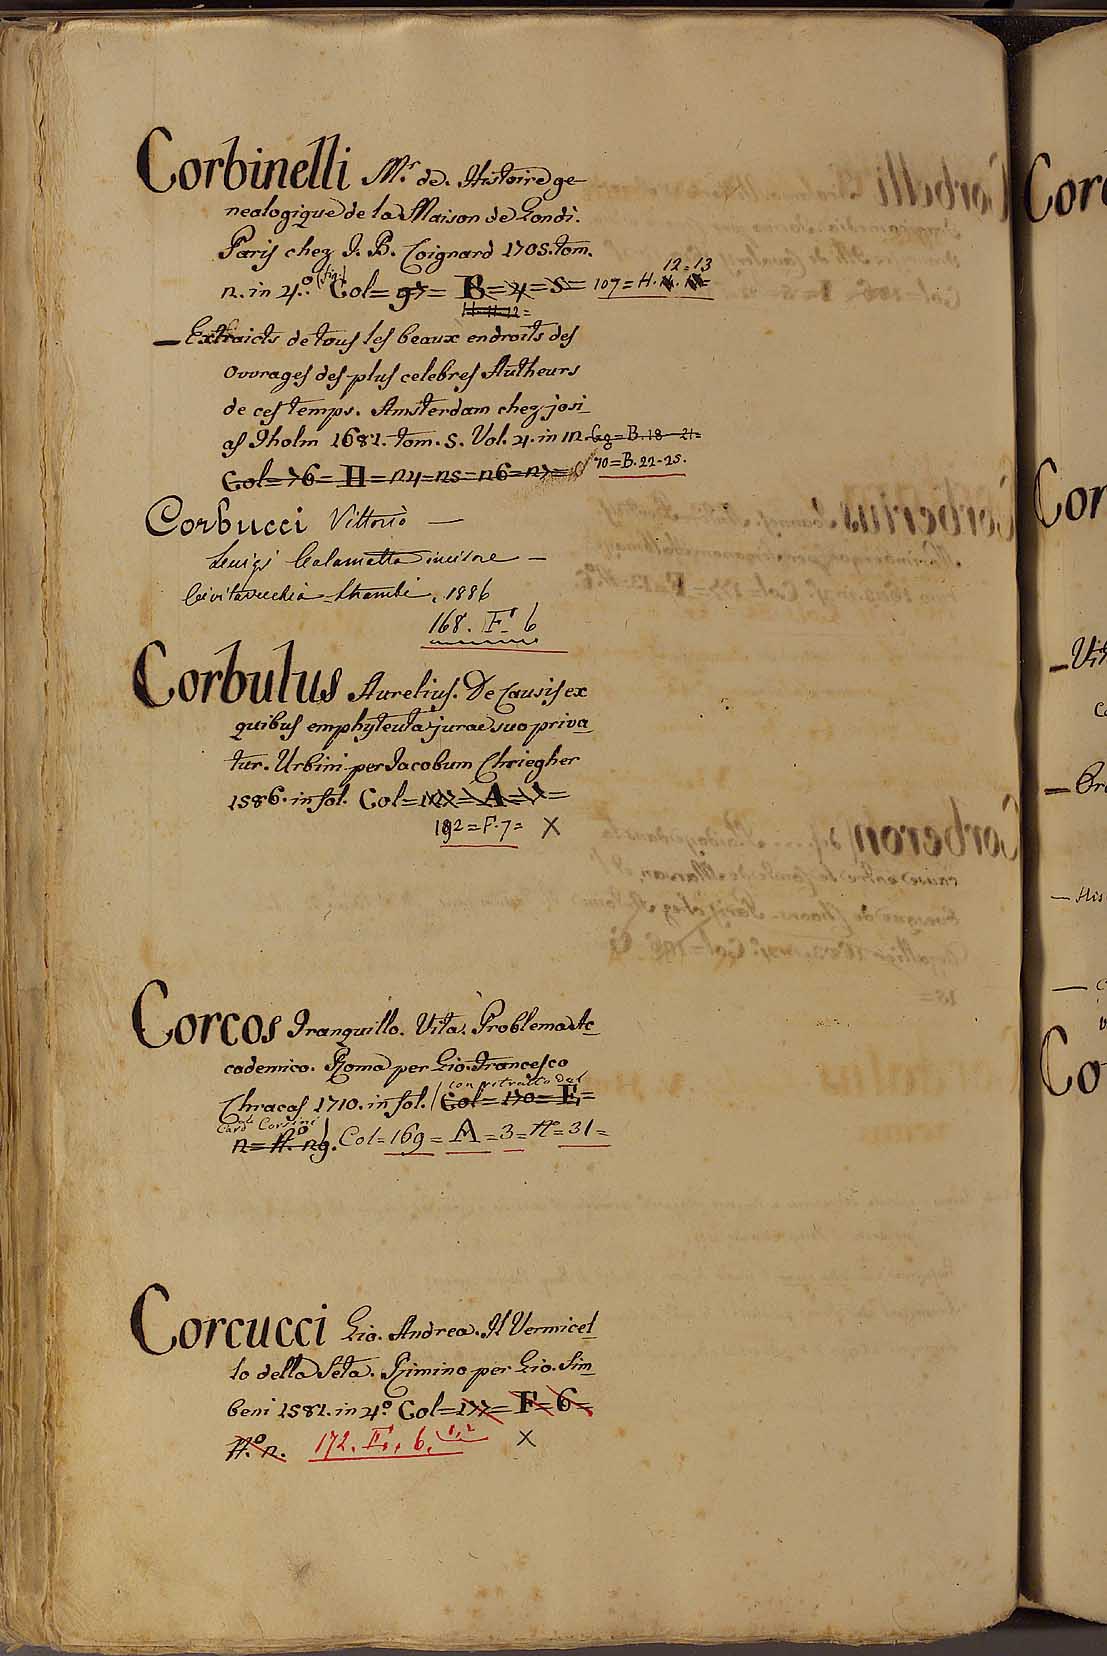 Corbinelli Mr. de. Histoire ge
nealogique de la Maison de Gondi.
Paris chez J. B. Coignard 1705. tom.
2. in 4.º (fig.) Col= 97= B=4=5= 107=H. 12=13
H=11=12=
— Extraicts de tous les beaux endroits des
Ouvrages des plus celebres Autheurs
de ces temps. Amsterdam chez josi
as Tholm 1681. tom. 5. Vol. 4. in 12. Gg=B.18-21=
Col=76=H=24=25=26=27= 70=B.22-25.
Corbucci Vittorio —
Luigi Calamatta incisore —
Civitavecchia Strambi, 1886
168. F. 6
Corbulus Aurelius. De Causis ex
quibus emphyteuta jurae suo priva
tur. Urbini per Jacobum Chriegher
1586. in fol. Col= A=
192=F.7= X
Corcos Tranquillo. Vita. Problema Ac
cademico. Roma per Gio. Francesco
con ritratto del
Chracas 1710. in fol. (Col=170=F=
Card. Corsini)
2=N.º 29. Col=169=A=3=Nº=31=
Corcucci Gio. Andrea. Il Vermicel
lo della Seta. Rimino per Gio. Sim
beni 1581. in 4º. Col=177=F=6=
N.º 2. 172. F. 6. 1,2 X
Cor
Cor
— Vit
— Or
— His
—
Co